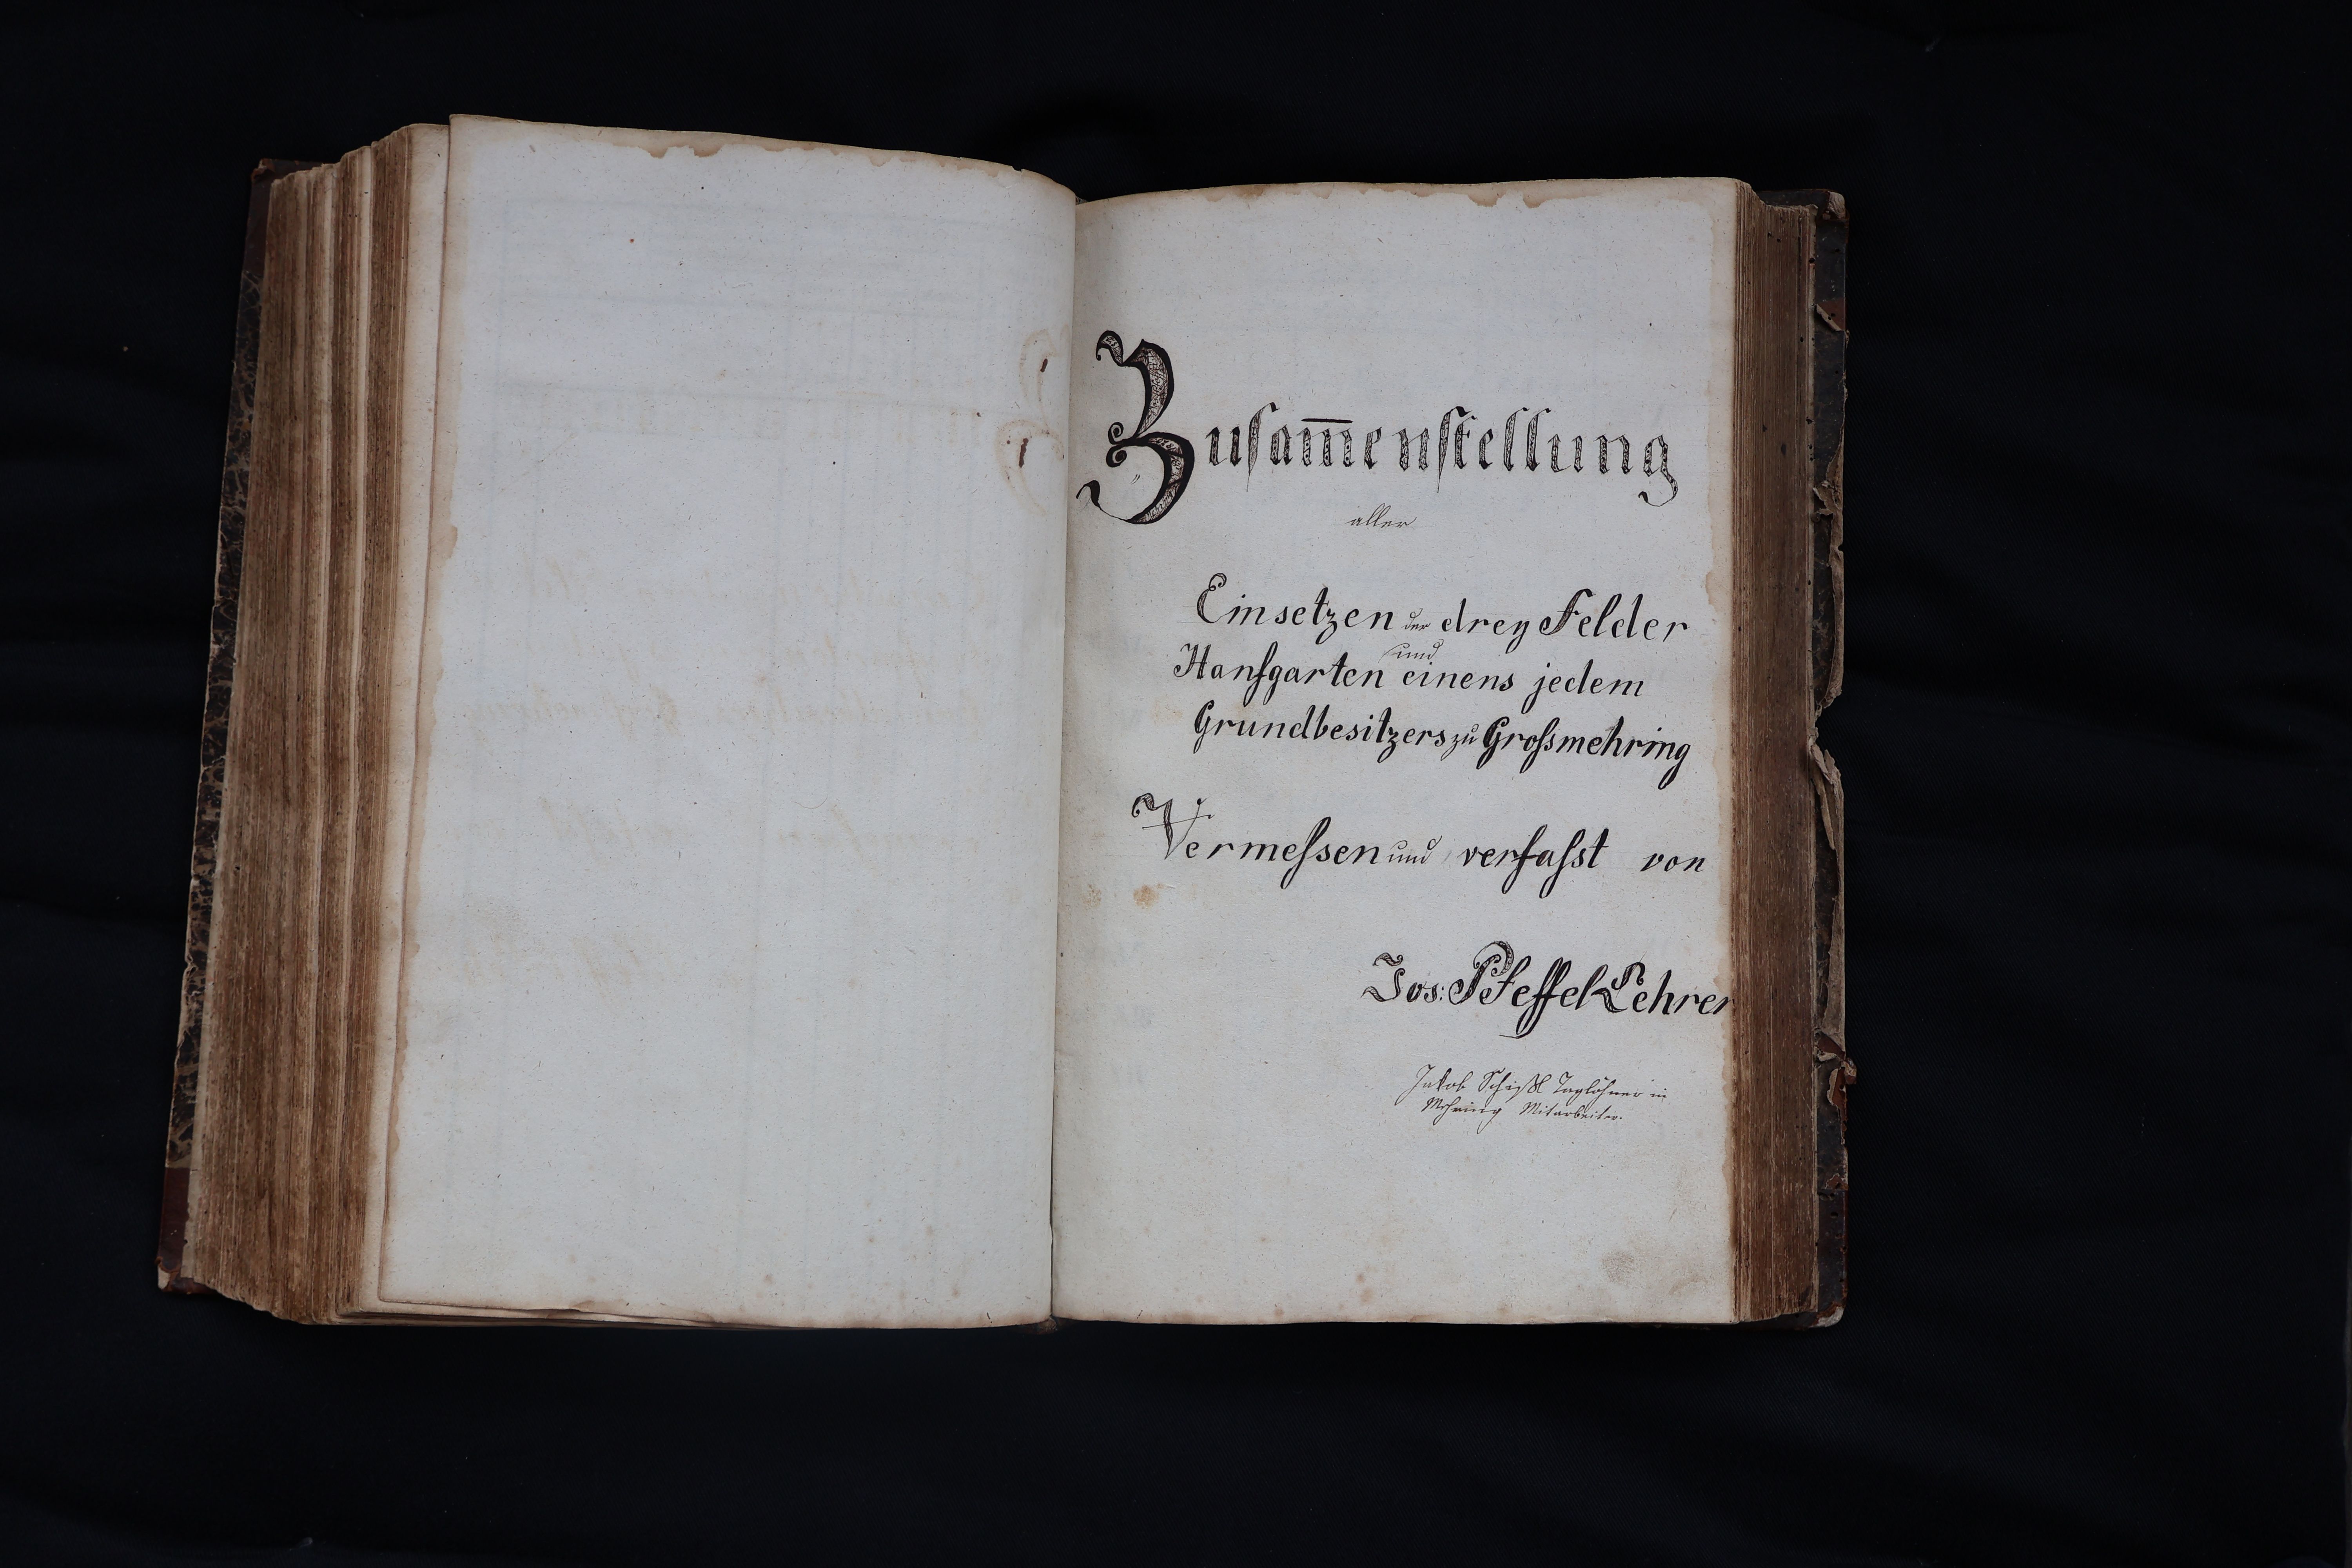 Zusam̅enstellung
aller
Einsetzen der drey Felder
und
Hanfgarten einens jedem
Grundbesitzers zu Großmehring
Vermeſsen und verfaſst von
Jos: Pfeffel Lehrer
Jakob Schißl Taglöhner in
Mehring Mitarbeiter.